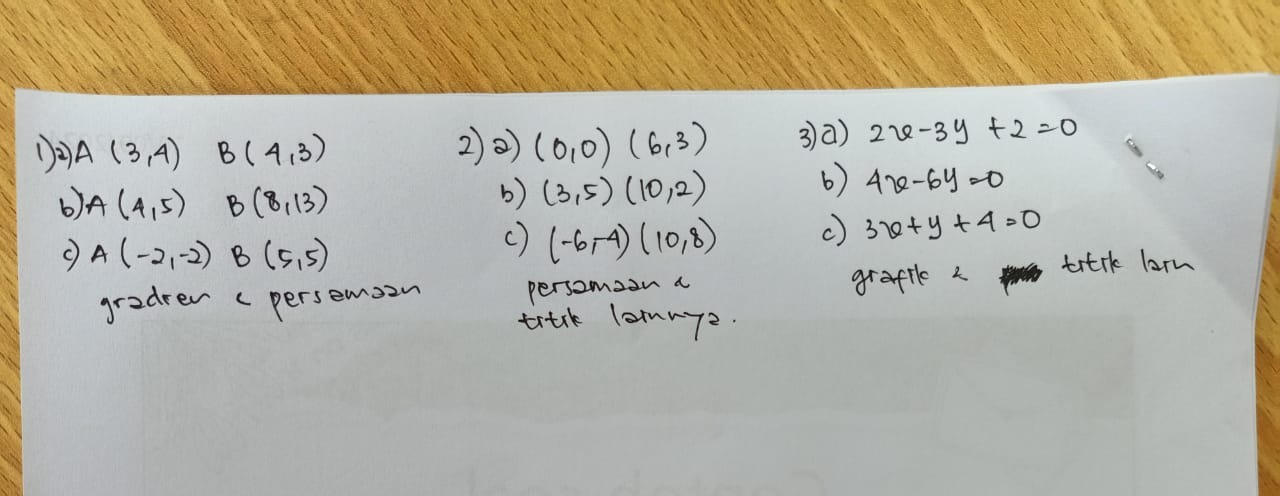 1) a) A (3,4) B (4,3)
b) A (4,5) B (8,13)
c) A (-2,-2) B (5,5)
gradien & persamaan
2) a) (0,0) (6,3)
b) (3,5) (10,2)
c) (-6,-4) (10,8)
persamaan &
titik lainnya.
3) a) 2x-3y +2=0
b) 4x-6y=0
c) 3x+y+4=0
grafik & titik lain